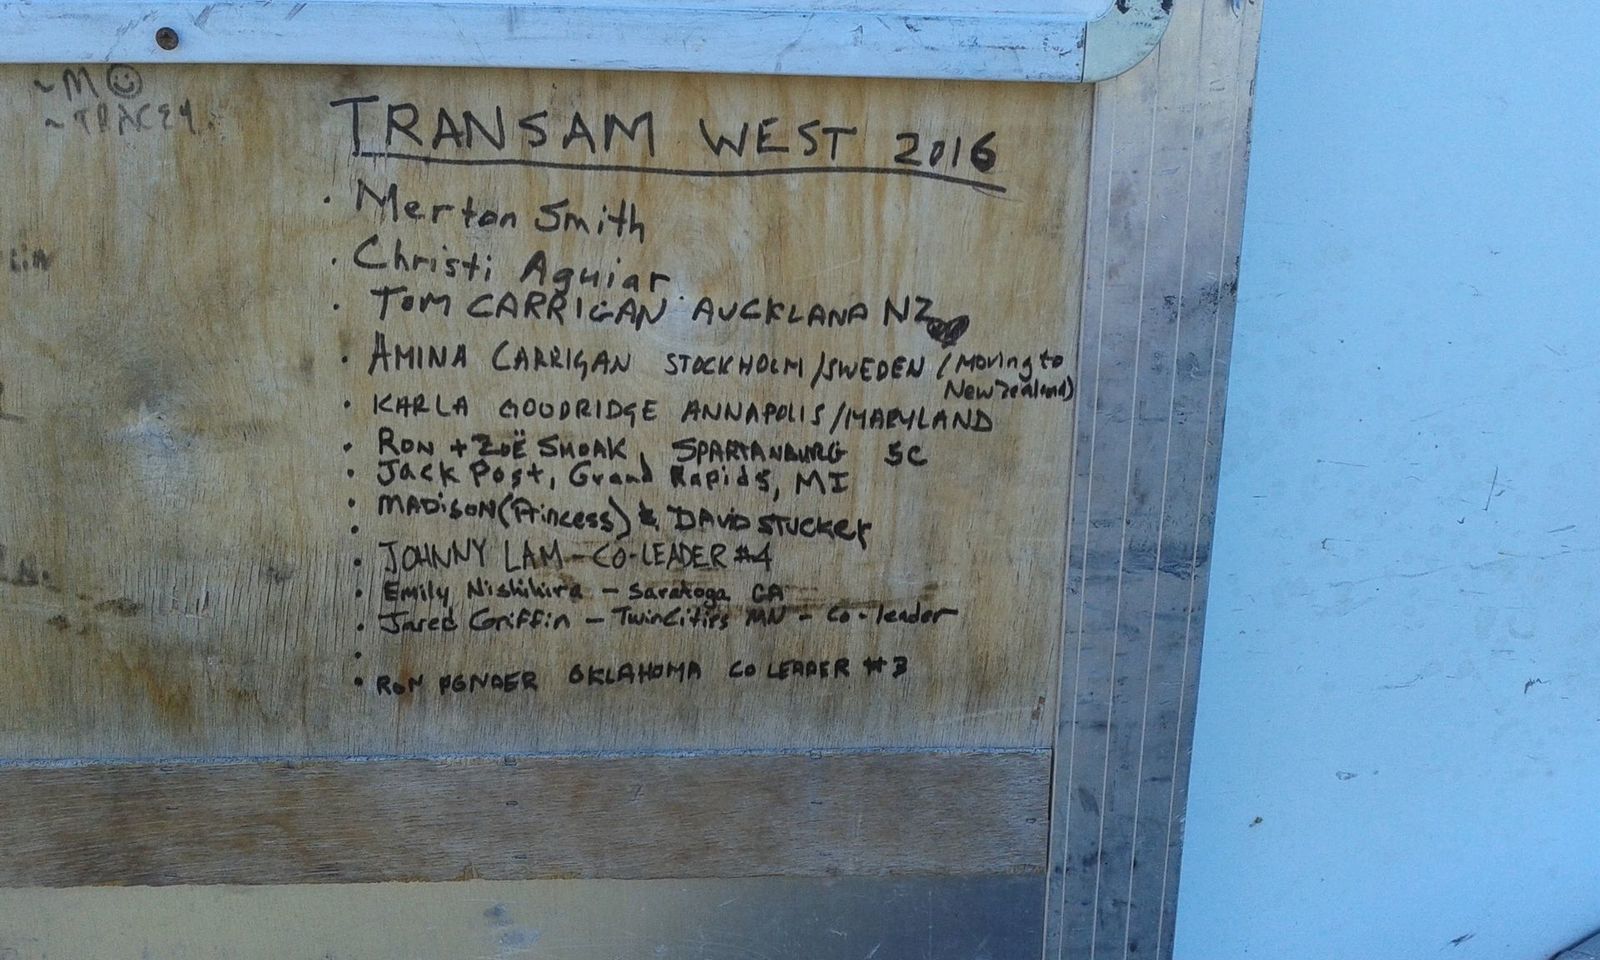 ~M
~TRACEY
TRANSAM WEST 2016
· Merton Smith
· Christi Aguiar
· TOM CARRIGAN AUCKLAND NZ
· AMINA CARRIGAN STOCKHOLM/SWEDEN/(Moving to
New Zealand)
· KARLA GOODRIDGE ANNAPOLIS/MARYLAND
· RON + ZOË SMOAK, SPARTANBURG SC
· Jack Post, Grand Rapids, MI
· MADISON (Princess) & DAVID STUCKEY
· JOHNNY LAM - CO-LEADER #4
· Emily Nishihira - Saratoga CA
· Jared Griffin - Twin Cities MN - Co-leader
· RON PONDER OKLAHOMA CO LEADER #3